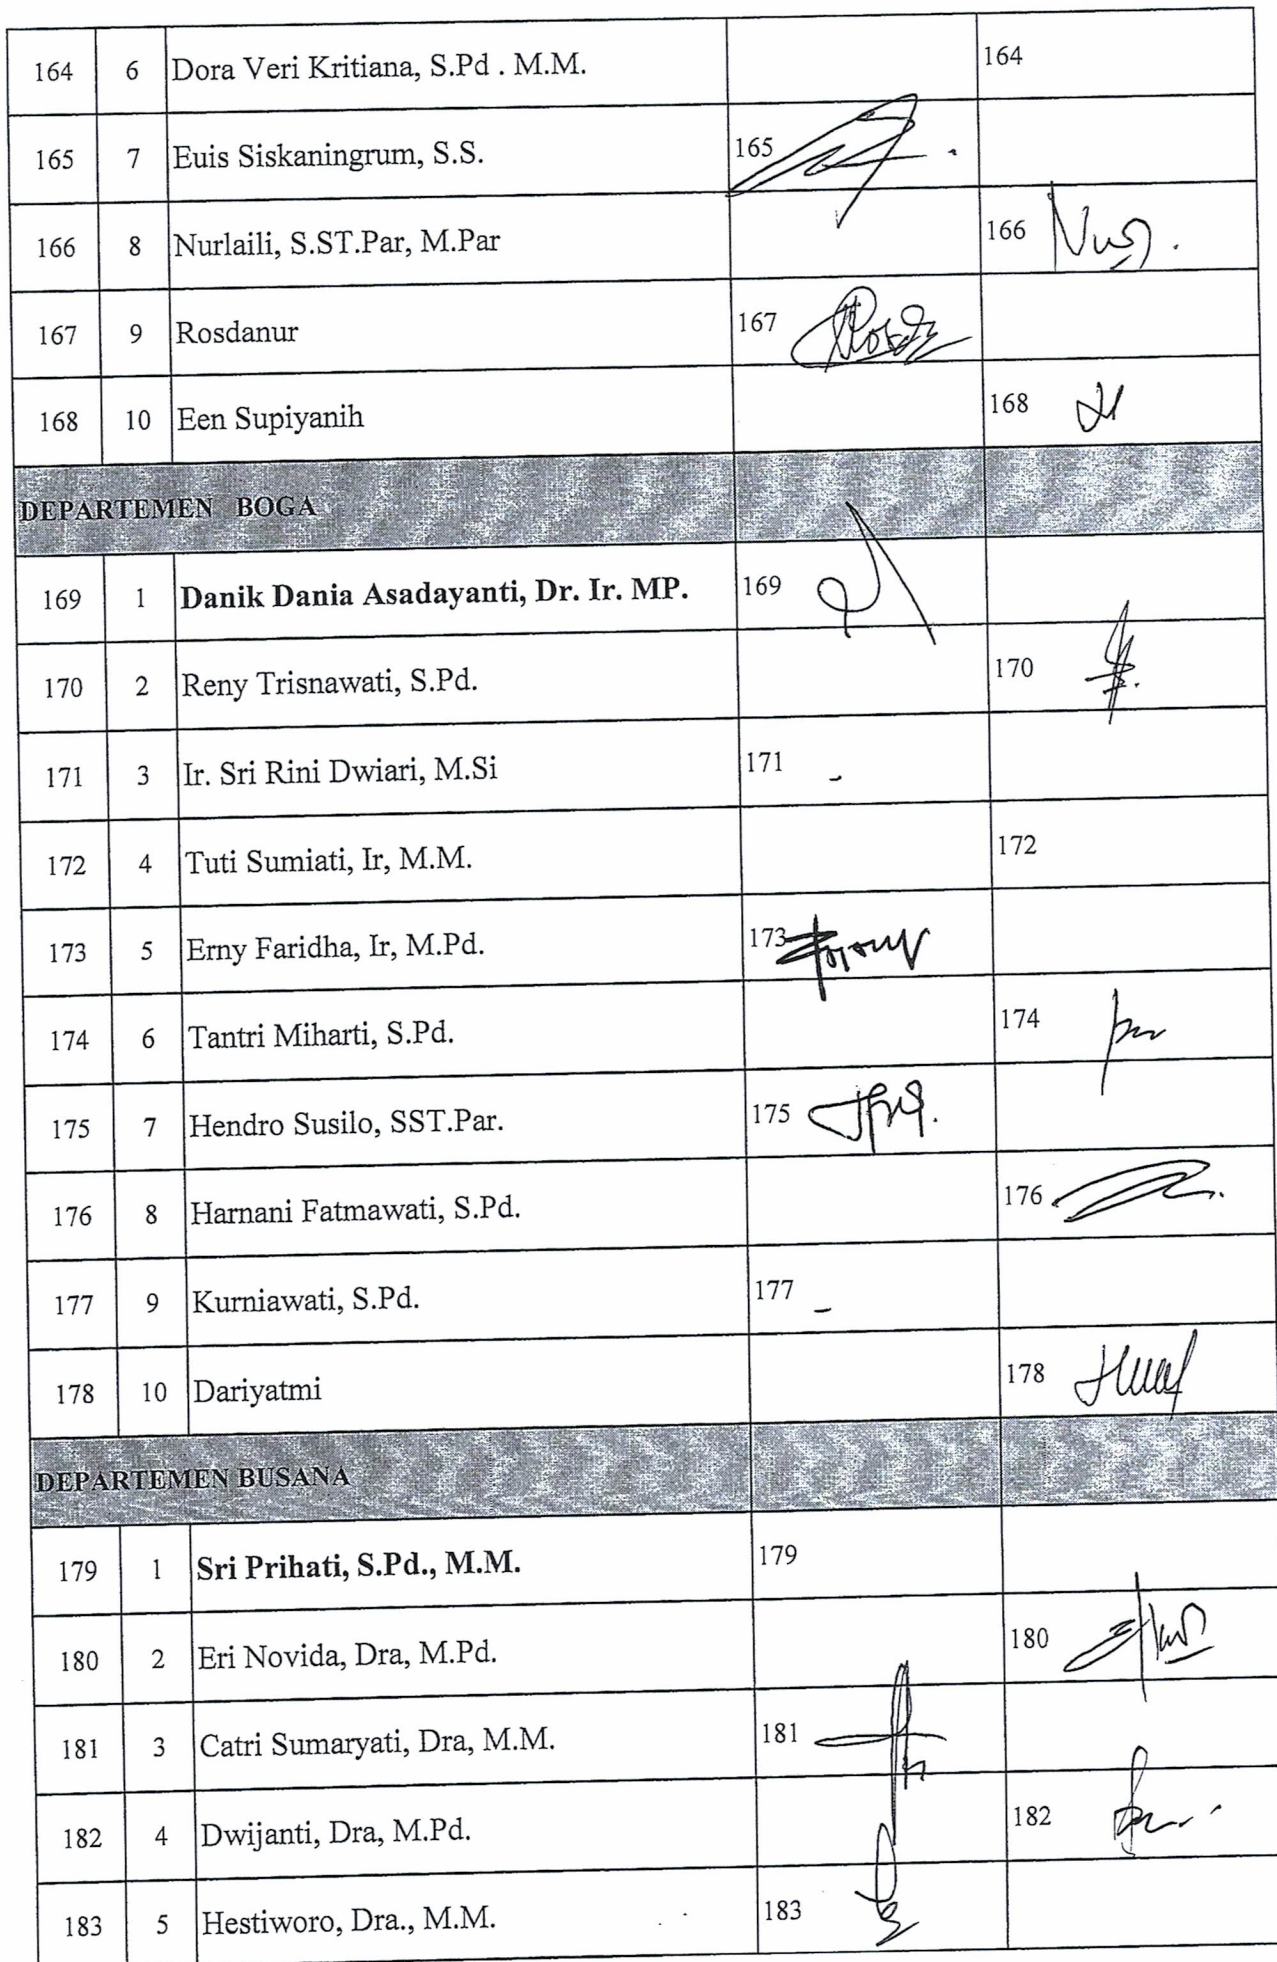 164 6 Dora Veri Kritiana, S.Pd . M.M. 164
165 7 Euis Siskaningrum, S.S. 165
166 8 Nurlaili, S.ST.Par, M.Par 166
167 9 Rosdanur 167
168 10 Een Supiyanih 168
DEPARTEMEN BOGA
169 1 Danik Dania Asadayanti, Dr. Ir. MP. 169
170 2 Reny Trisnawati, S.Pd. 170
171 3 Ir. Sri Rini Dwiari, M.Si 171 -
172 4 Tuti Sumiati, Ir, M.M. 172
173 5 Erny Faridha, Ir, M.Pd. 173
174 6 Tantri Miharti, S.Pd. 174
175 7 Hendro Susilo, SST.Par. 175
176 8 Harnani Fatmawati, S.Pd. 176
177 9 Kurniawati, S.Pd. 177 -
178 10 Dariyatmi 178
DEPARTEMEN BUSANA
179 1 Sri Prihati, S.Pd., M.M. 179
180 2 Eri Novida, Dra, M.Pd. 180
181 3 Catri Sumaryati, Dra, M.M. 181
182 4 Dwijanti, Dra, M.Pd. 182
183 5 Hestiworo, Dra., M.M. 183